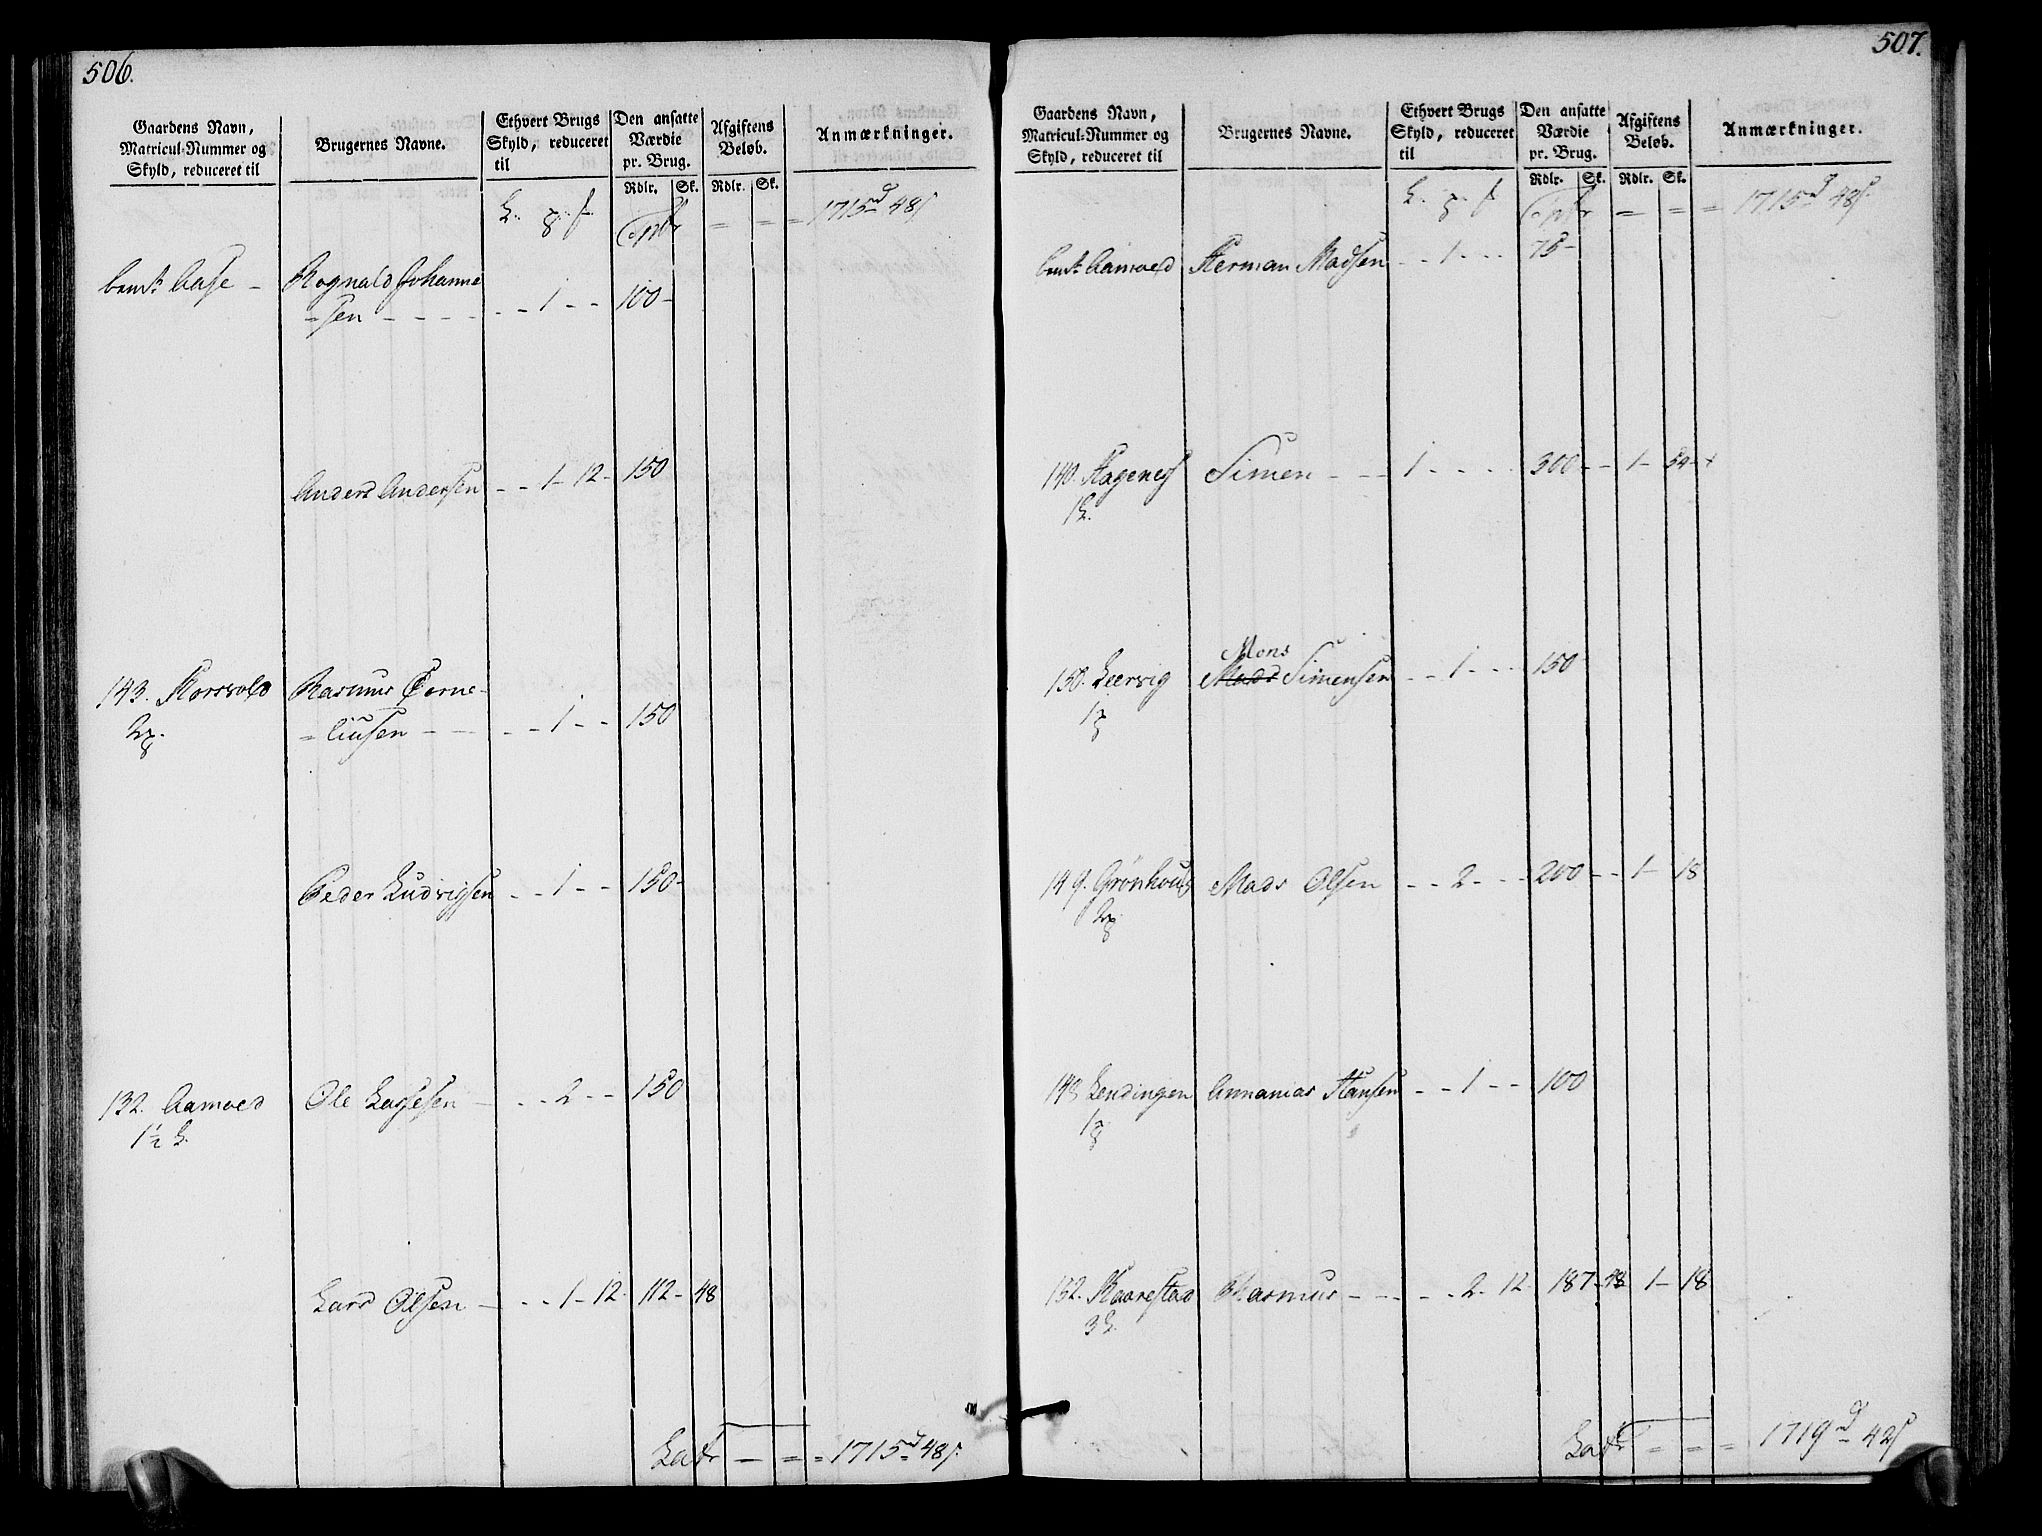 506.
Gaardens Navn, Matricul-Nummer og Skyld, reduceret til
Brugernes Navne.
Ethvert Brugs Skyld, reduceret til
Den ansatte Værdie pr. Brug.
Afgiftens Beløb.
Anmærkninger.
Rdlr. Sk. Rdlr. Sk.
Tpr = = = 1715 d 48 s
Aase - Rognald Johanne
=sen - - - - - - 1 - - 100 -
Anders Andersen - - 1 - 12 - 150
143. Korsvold Rasmus Corne-
2 =liusen - - - - 1 - - 150
Peder Ludvigsen - - 1 - - 150 -
132. Aamoed Ole Lassesen - - - 2 - - 150
1½ L.
Lars Olsen - - - 1 - 12 112 - 48
Latr - = = 1715 d 48 s.
507.
Gaardens Navn, Matricul-Nummer og Skyld, reduceret til
Brugernes Navne.
Ethvert Brugs Skyld, reduceret til
Den ansatte Værdie pr. Brug.
Afgiftens Beløb.
Anmærkninger.
Rdlr. Sk. Rdlr. Sk.
Tpr = = = 1715 d 48 s
Aamoed Herman Madsen - - 1 - - - 75 -
140. Hagenes Simen - - - 1 - - - - 300 - - 1 - 54
1 L.
Mons
150. Leervig Mads Simensen - - 1 - - - 150
1
149. Grønhoug Mads Olsen - - 2 - - - 200 - - 1 - 18
2
143 Lendingen Annanias Hansen - - 1 - - - 100
1
132. Kaarestad Rasmus - - - - - 2 - 12 187 - 48 1 - 18
3 L.
Latr = = = 1719 d 42 s